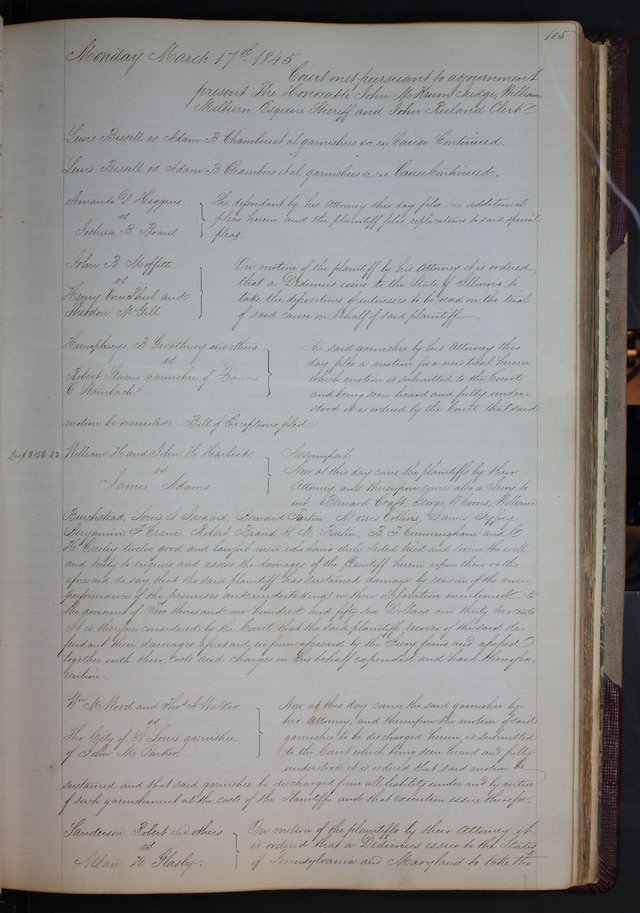 105
Monday March 17th 1845
Court met pursuant to adjournment
present The Honorable John M. Krum Judge, William
Milburn Esquire Sheriff and John Ruland Clerk
Lewis Bissell vs Adam B Chambers et al garnishees &c. Cause Continued.
Lewis Bissell vs Adam B Chambers et al garnishees &c. Cause Continued.
Amanda D. Higgins
vs
Joshua B Brant
The defendant by his attorney this day files additional
pleas herein and the plaintiff files replications to said special
pleas
John B Moffitt
vs
Henry Von Phul and
Theodore McGill
On motion of the plaintiff by his Attorney it is ordered
that a Dedimus issue to the State of Illinois to
take the deposition of witnesses to be read on the trial
of said cause on behalf of said plaintiff
Humphreys B Gwathney and others
vs
Robert garnishee of Francis
C
The said garnishee by his Attorney this
day files a motion for a new trial herein
which motion is submitted to the Court
and being seen heard and fully under-
stood it is ordered by the Court that said
motion be overruled Bill of Exceptions filed
William H and John H Harbeck
vs
James Adams
Assumpsit
Now at this day come the plaintiffs by their
Attorney and thereupon comes also a Jury to
wit Bernard Craft, George W Coons, William
Louis Bernard Morris Collins, James
Benjamin F Crane, Robert Brand, S. M. B. F Cunningham and C
H twelve good and lawful men who being duly elected tried and sworn the well
and truly to inquire and assess the damages of the plaintiff herein upon their oaths
aforesaid do say that the said plaintiff has sustained damage by reason of the non
performance of the promises and undertakings in their declaration mentioned to
the amount of Two thousand one hundred and fifty six Dollars and thirty two cents
It is therefore considered by the Court that the said plaintiff recover of the said de-
fendant their damages aforesaid in form aforesaid by the Jury found and assessed
together with their Costs and charges in this behalf expended and have therefor exe-
cution.
Wm M Wood and Thos A Walker
vs
The City of St Louis garnishee
of John M. Parker
Now at this day comes the said garnishee by
her attorney, and thereupon the motion of said
garnishee to be discharged herein is submitted
to the Court which being seen heard and fully
understood it is ordered that said motion be
sustained and that said garnishee be discharged from all liability under and by virtue
of such garnishment at the costs of the Plaintiffs and that execution issue therefor.
Sanderson Robert and others
vs
Allan H Glasby.
On motion of the plaintiffs by their Attorney it
is ordered that a Dedimus issue to the States
of Pennsylvania and Maryland to take the